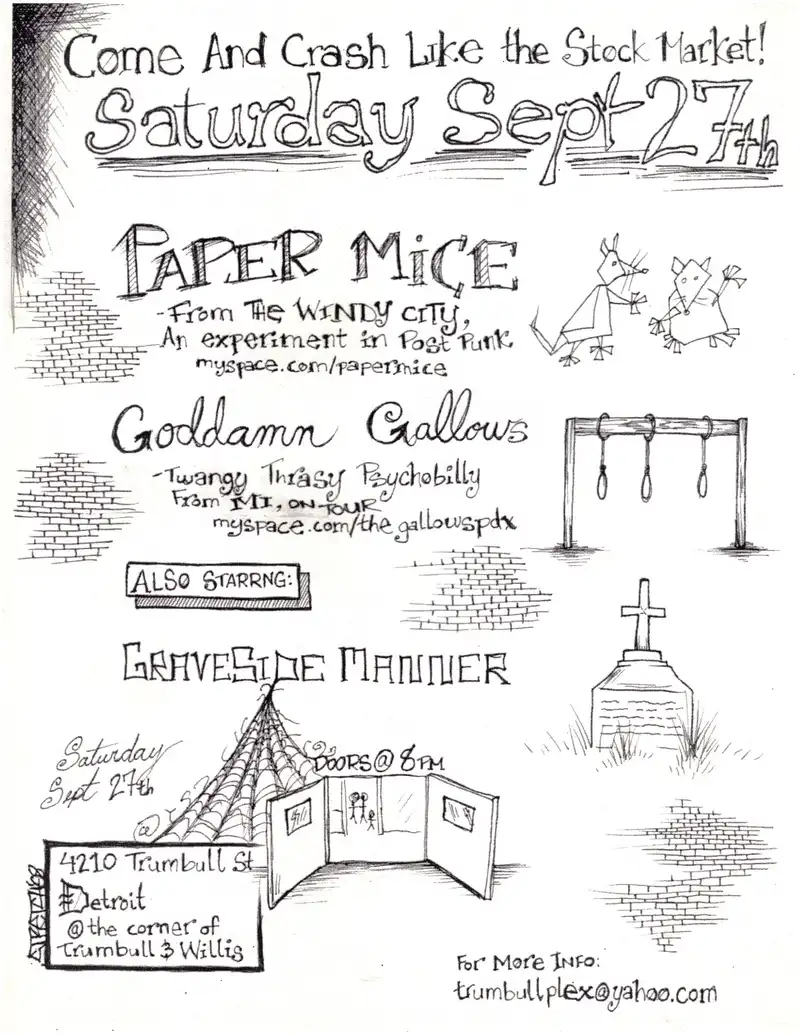 Come And Crash Like the Stock Market!
Saturday Sept 27th
PAPER MiCE
-From THE WINDY CITY,
An experiment in Post Punk
myspace.com/papermice
Goddamn Gallows
-Twangy Thrasy Psychobilly
From MI, ON TOUR
myspace.com/thegallowspdx
ALSO STARRNG:
GRAVESIDE MANNER
Saturday
Sept 27th
DOORS@ 8PM
4210 Trumbull St
Detroit
@ the corner of
Trumbull & Willis
For More Info:
trumbullplex@yahoo.com